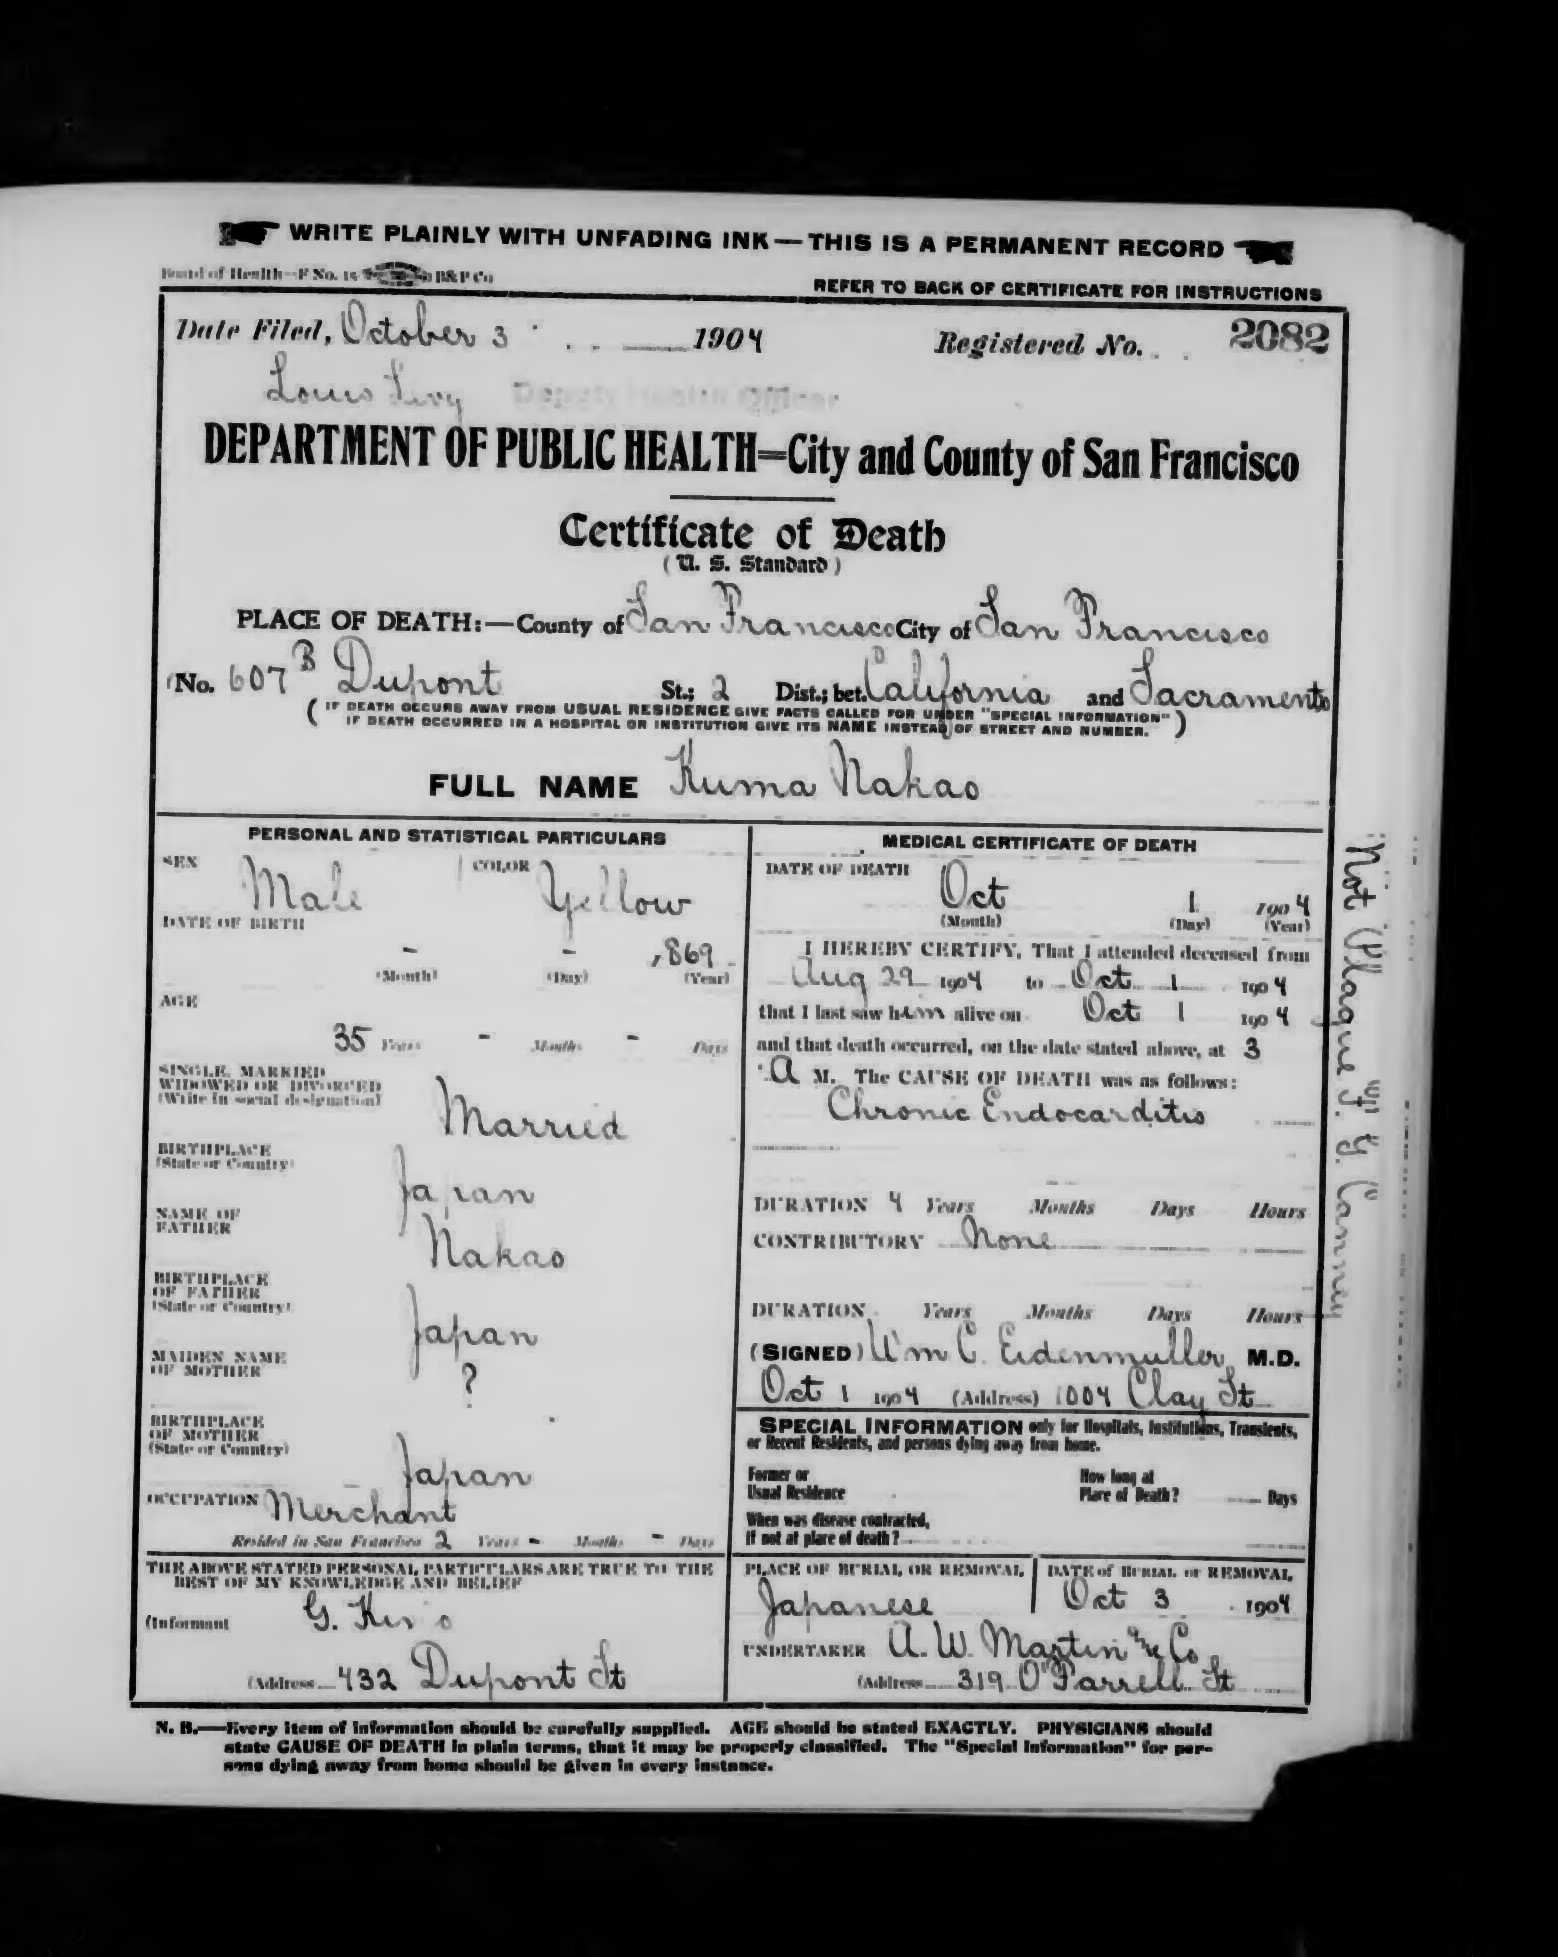 WRITE PLAINLY WITH UNFADING INK—THIS IS A PERMANENT RECORD
Board of Health—F No. 15 B&P Co
REFER TO BACK OF CERTIFICATE FOR INSTRUCTIONS
Date Filed, October 3 1904 Registered No. 2082
Louis Levy Deputy Health Officer
DEPARTMENT OF PUBLIC HEALTH=City and County of San Francisco
Certificate of Death
(U. S. Standard)
PLACE OF DEATH:—County of San Francisco City of San Francisco
(No. 607 B Dupont St.; 2 Dist.; bet. California and Sacramento
(IF DEATH OCCURS AWAY FROM USUAL RESIDENCE GIVE FACTS CALLED FOR UNDER "SPECIAL INFORMATION"
IF DEATH OCCURRED IN A HOSPITAL OR INSTITUTION GIVE ITS NAME INSTEAD OF STREET AND NUMBER.)
FULL NAME Kuma Nakao
PERSONAL AND STATISTICAL PARTICULARS
SEX Male COLOR Yellow
DATE OF BIRTH
- - 1869
(Month) (Day) (Year)
AGE
35 Years - Months - Days
SINGLE, MARRIED
WIDOWED OR DIVORCED
(Write in social designation)
Married
BIRTHPLACE
(State or Country)
Japan
NAME OF
FATHER
Nakao
BIRTHPLACE
OF FATHER
(State or Country)
Japan
MAIDEN NAME
OF MOTHER
?
BIRTHPLACE
OF MOTHER
(State or Country)
Japan
OCCUPATION Merchant
Resided in San Francisco 2 Years - Months - Days
THE ABOVE STATED PERSONAL PARTICULARS ARE TRUE TO THE
BEST OF MY KNOWLEDGE AND BELIEF
(Informant G.
(Address 432 Dupont St
MEDICAL CERTIFICATE OF DEATH
DATE OF DEATH
Oct 1 1904
(Month) (Day) (Year)
I HEREBY CERTIFY, That I attended deceased from
Aug 29 1904 to Oct 1 1904
that I last saw him alive on Oct 1 1904
and that death occurred, on the date stated above, at 3
A M. The CAUSE OF DEATH was as follows:
Chronic Endocarditis
DURATION 4 Years Months Days Hours
CONTRIBUTORY None
DURATION Years Months Days Hours
(SIGNED) Wm C. Eidenmuller M.D.
Oct 1 1904 (Address) 1004 Clay St
SPECIAL INFORMATION only for Hospitals, Institutions, Transients,
or Recent Residents, and persons dying away from home.
Former or
Usual Residence
How long at
Place of Death? Days
When was disease contracted,
If not at place of death?
PLACE OF BURIAL OR REMOVAL
Japanese
DATE of BURIAL or REMOVAL
Oct 3 1904
UNDERTAKER A. W. Martin & Co
(Address 319 O'Farrell St
N. B.—Every item of information should be carefully supplied. AGE should be stated EXACTLY. PHYSICIANS should
state CAUSE OF DEATH in plain terms, that it may be properly classified. The "Special Information" for per-
sons dying away from home should be given in every instance.
Not Plague F. G. Canney